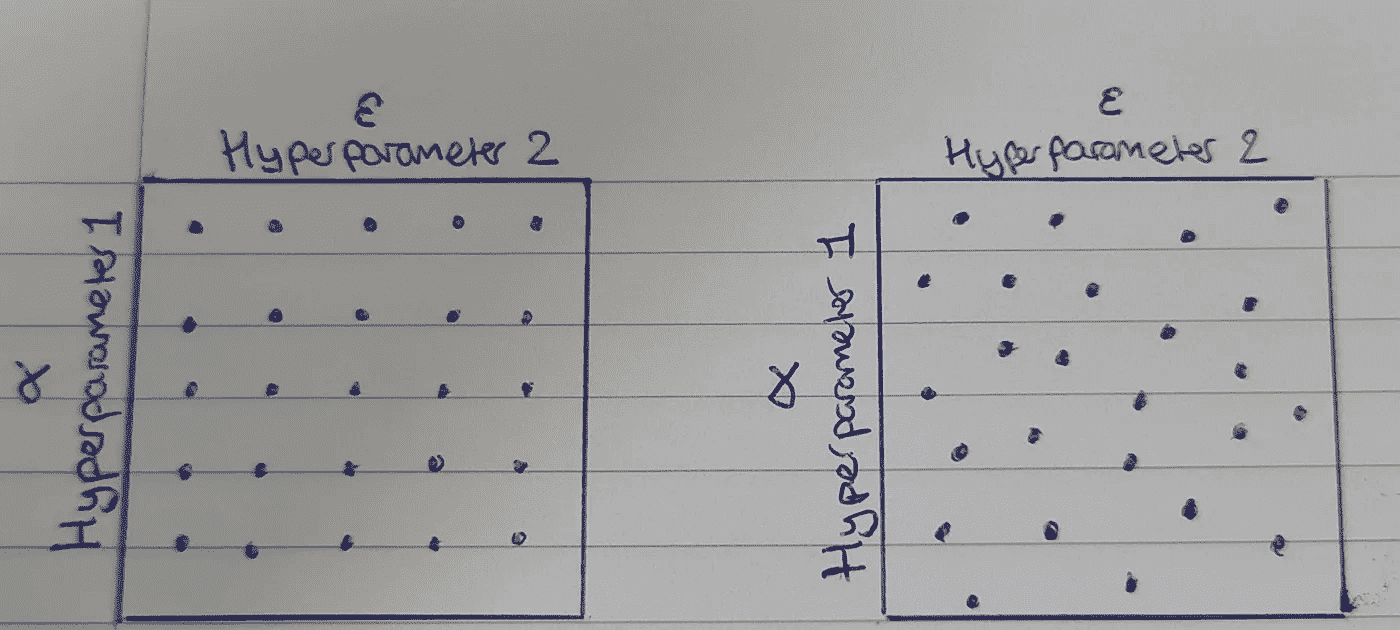 ε
Hyperparameter 2
α
Hyperparameter 1
ε
Hyperparameter 2
α
Hyperparameter 1